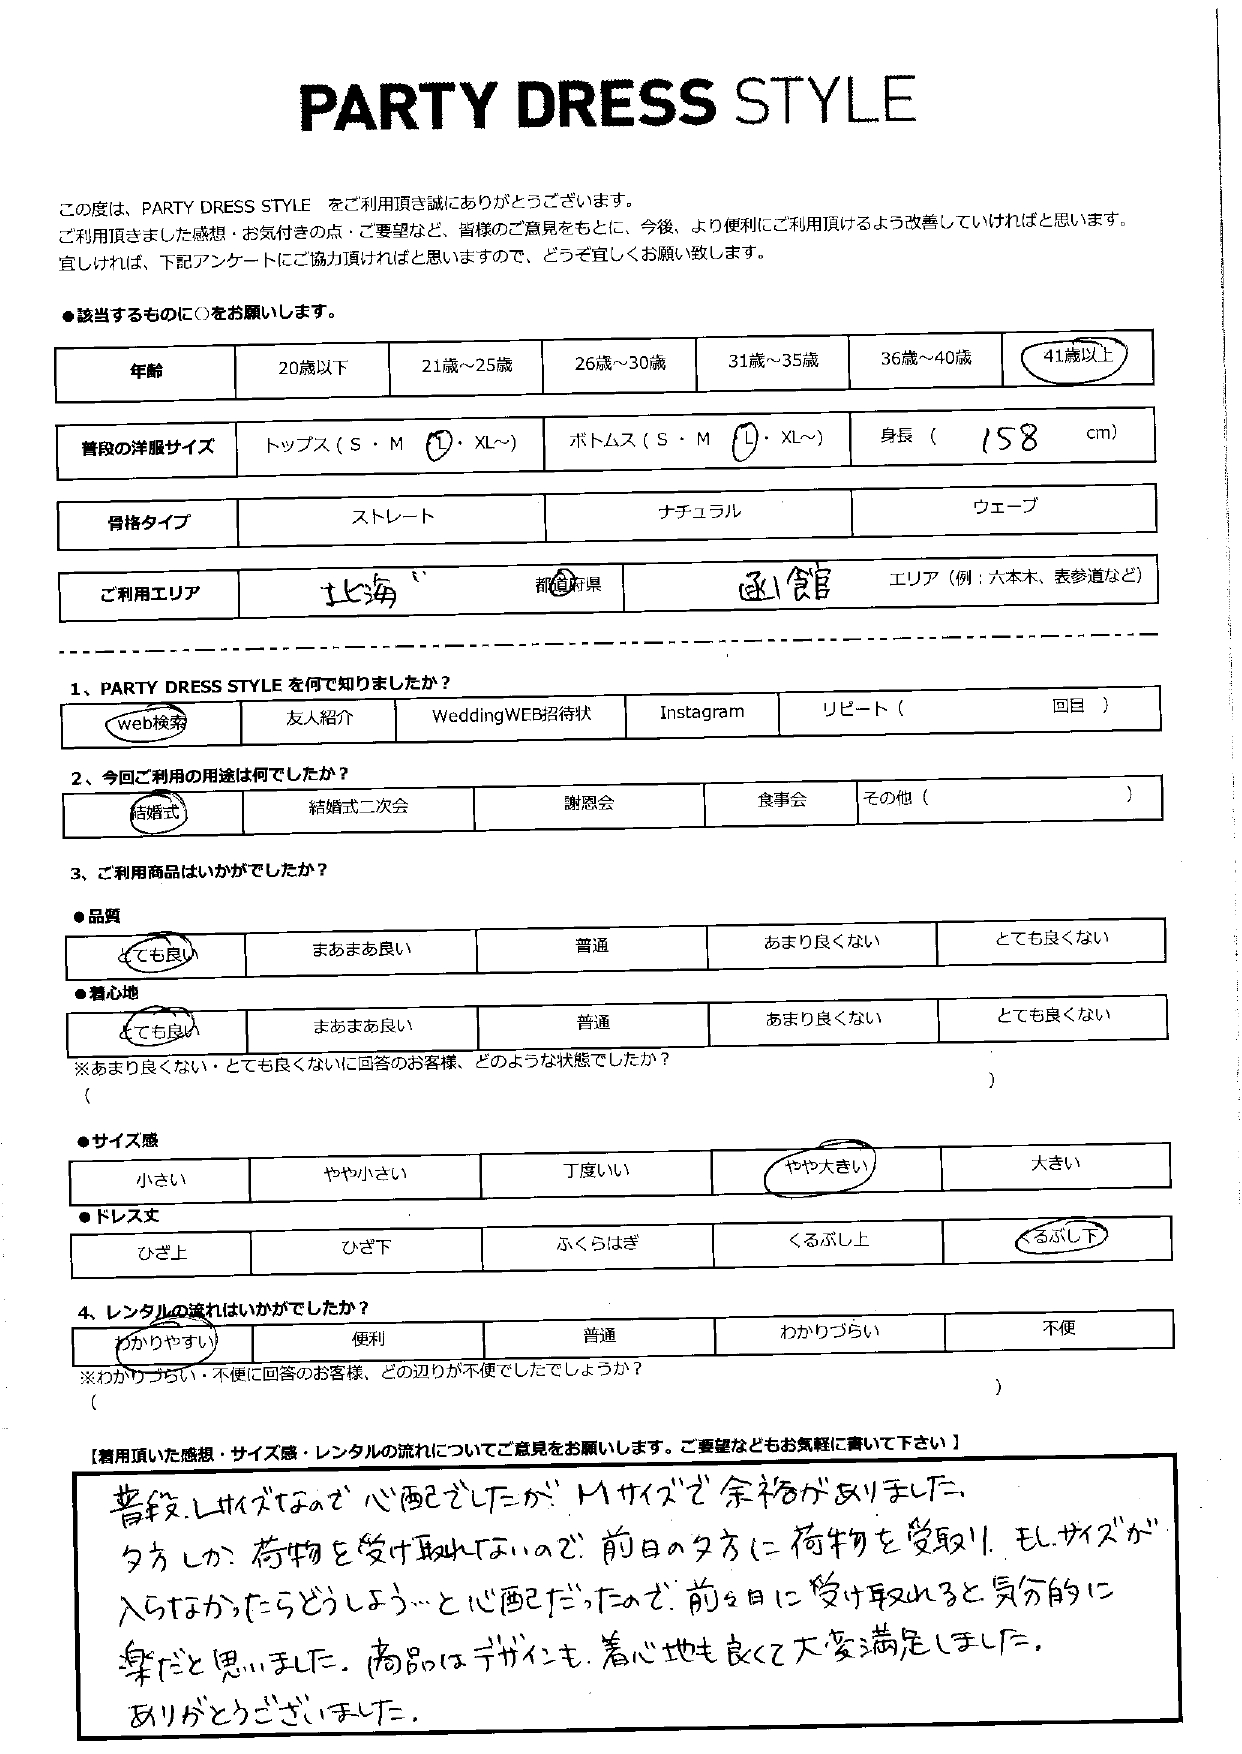 PARTY DRESS STYLE
この度は、PARTY DRESS STYLE をご利用頂き誠にありがとうございます。
ご利用頂きました感想・お気付きの点・ご要望など、皆様のご意見をもとに、今後、より便利にご利用頂けるよう改善していければと思います。
宜しければ、下記アンケートにご協力頂ければと思いますので、どうぞ宜しくお願い致します。
●該当するものに○をお願いします。
年齢 20歳以下 21歳～25歳 26歳～30歳 31歳～35歳 36歳～40歳 41歳以上
普段の洋服サイズ トップス ( S ・ M L ・ XL～) ボトムス ( S ・ M L ・ XL～) 身長 ( 158 cm)
骨格タイプ ストレート ナチュラル ウェーブ
ご利用エリア 北海 都道府県 函館 エリア（例：六本木、表参道など）
1、PARTY DRESS STYLE を何で知りましたか？
web検索 友人紹介 WeddingWEB招待状 Instagram リピート（ 回目 ）
2、今回ご利用の用途は何でしたか？
結婚式 結婚式二次会 謝恩会 食事会 その他（ ）
3、ご利用商品はいかがでしたか？
●品質
とても良い まあまあ良い 普通 あまり良くない とても良くない
●着心地
とても良い まあまあ良い 普通 あまり良くない とても良くない
※あまり良くない・とても良くないに回答のお客様、どのような状態でしたか？
（ ）
●サイズ感
小さい やや小さい 丁度いい やや大きい 大きい
●ドレス丈
ひざ上 ひざ下 ふくらはぎ くるぶし上 くるぶし下
4、レンタルの流れはいかがでしたか？
わかりやすい 便利 普通 わかりづらい 不便
※わかりづらい・不便に回答のお客様、どの辺りが不便でしたでしょうか？
（ ）
【着用頂いた感想・サイズ感・レンタルの流れについてご意見をお願いします。ご要望などもお気軽に書いて下さい 】
普段、Lサイズなので心配でしたが、Mサイズで余裕がありました。
夕方しか、荷物を受け取れないので、前日の夕方に荷物を受取り、もし、サイズが
入らなかったらどうしよう…と心配だったので、前々日に受け取れると、気分的に
楽だと思いました。商品はデザインも、着心地も良くて大変満足しました。
ありがとうございました。